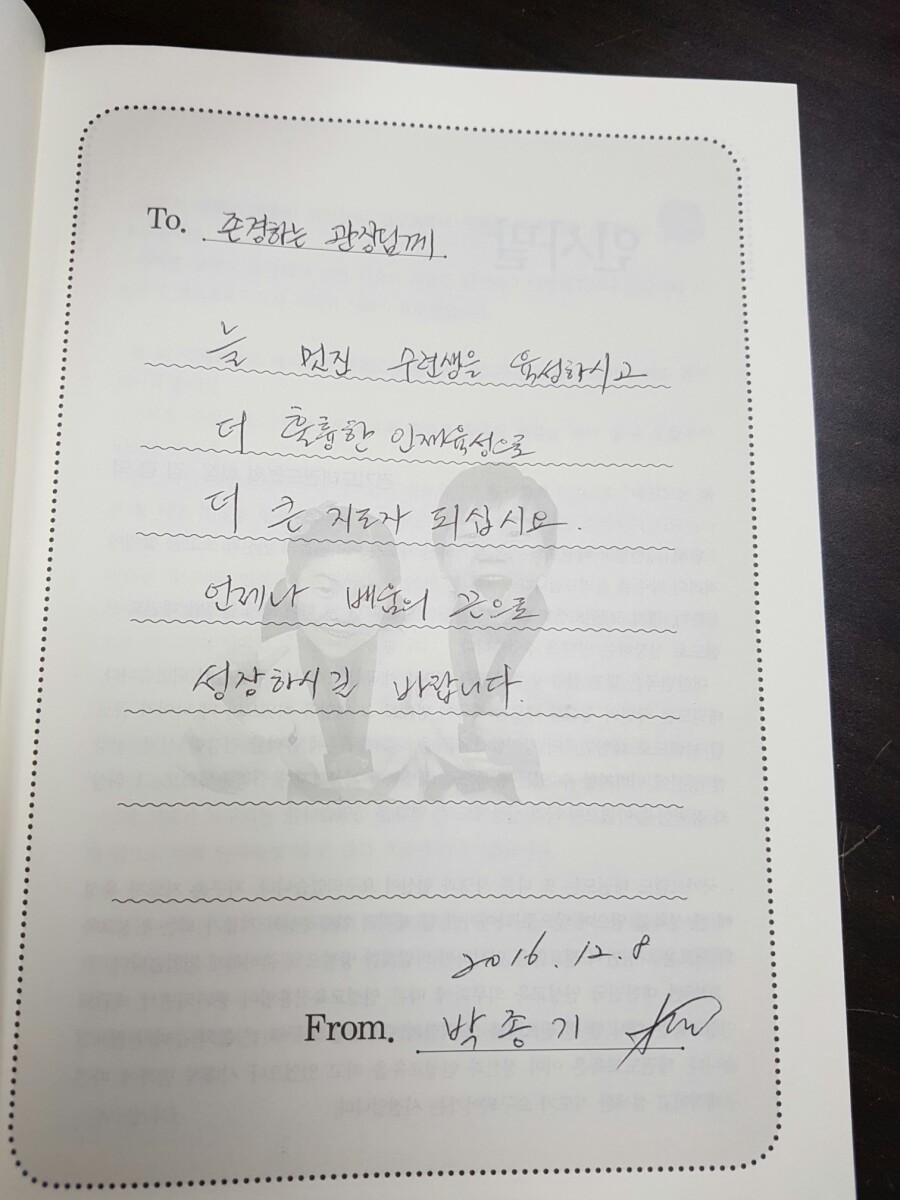 To. 존경하는 관장님께
늘 멋진 수련생을 육성하시고
더 훌륭한 인재육성으로
더 큰 지도자 되십시요.
언제나 배움의 끈으로
성장하시길 바랍니다
2016.12.8
From. 박종기